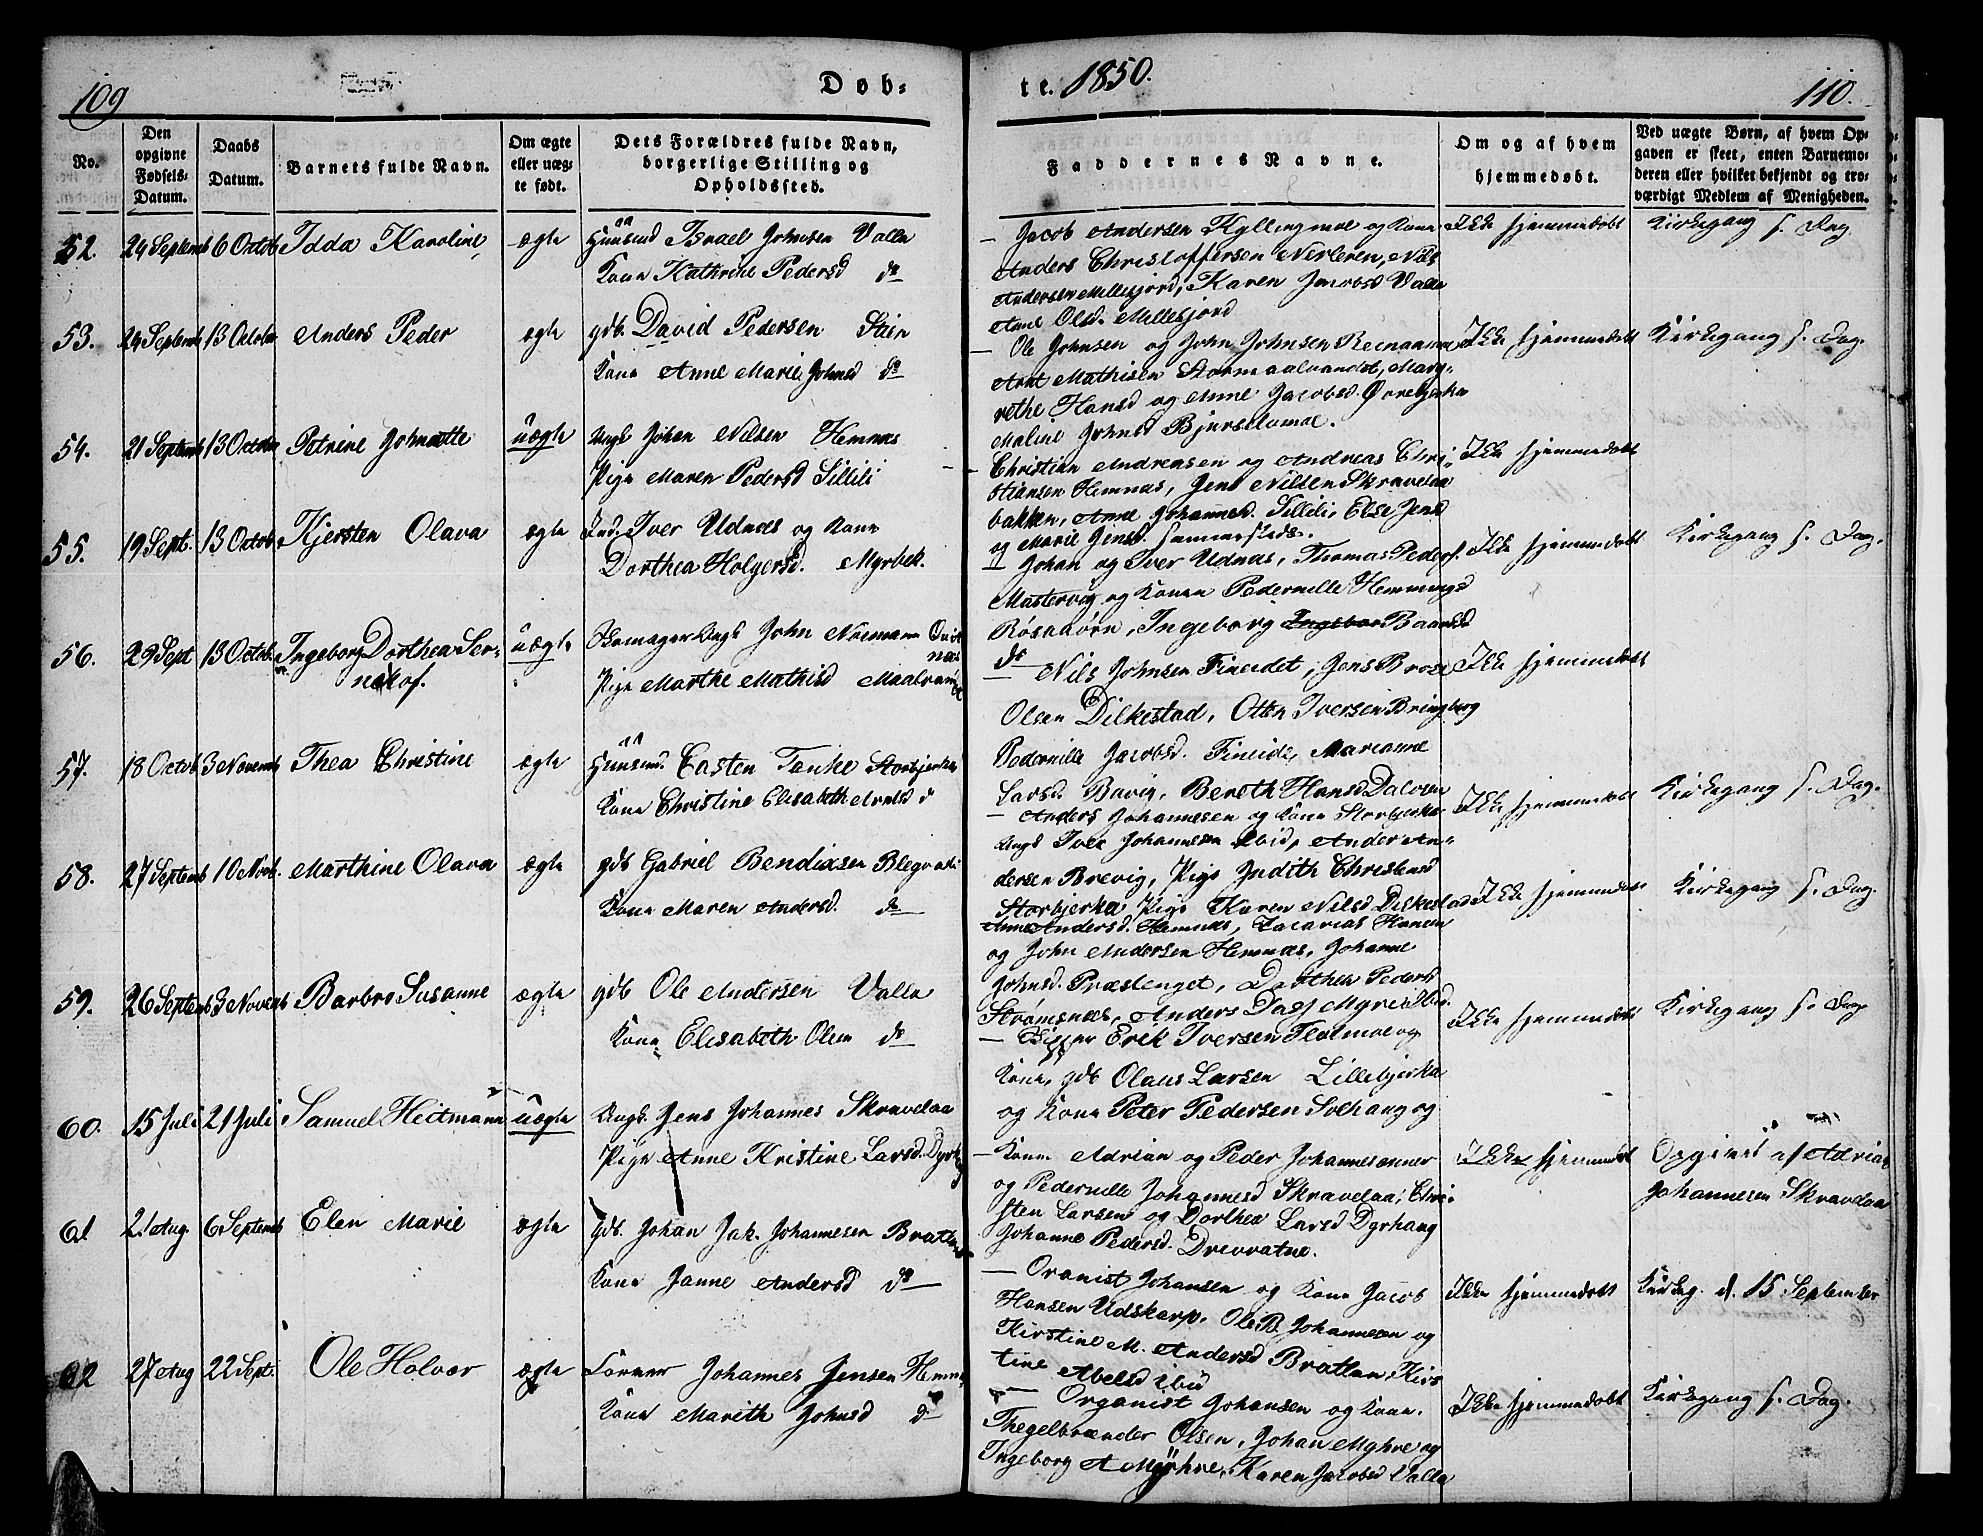 109
Døb-
te. 1850.
110.
No.
Den opgivne Fødsels-Datum.
Daabs Datum.
Barnets fulde Navn.
Om ægte eller uæg-te født.
Dets Forældres fulde Navn, borgerlige Stilling og Opholdssted.
Faddernes Navne.
Om og af hvem hjemmedøbt.
Ved uægte Børn, af hvem Op-gaven er skeet, enten Barnemo-deren eller hvilket bekjendt og tro-værdigt Medlem af Menigheden.
52. 24 Septemb 6 Octob Idda Karoline ægte Huusmd Israel Johnsen Valla
Kone Kathrine Pedersd do
Jacob Andersen Kyllingmoe og Kone
Anders Christoffersen Nerleren, Nils
Andersen Millesjord, Karen Jacobsd Valla
Anne Olsd. Millesjord
Ikke hjemmedøbt Kirkegang s. Dag
53. 24 Septemb 13 Octobr Anders Peder ægte gdb. David Pedersen Stien
Kone Anne Marie Johnsd do
Ole Johnsen og John Johnsen
Arnt Mathisen Stormaalvandet, Marg-
rethe Hansd og Anne Jacobsd. Øvrebjerka
Maline Johnsd
Ikke hjemmedøbt Kirkegang s. Dag.
54. 21 Septemb 13 Octobr Petrine uægte Ungk Johan Nilsen Hemnæs
Pige Maren Pedersd Lillili
Christian Andreasen og Andreas Chri-
stiansen Hemnæs, Jens Nilsen Skravelaa
bakken, Anne Johannesd. Lillili, Else Jensd
og Marie Jensd. sammesteds.
Ikke hjemmedøbt
55. 19 Sept. 13 Octob. Kjersten Olava ægte Ind. Iver Udnæs og Kone
Dorthea Holgersd. Myrbek.
Johan og Iver Udnæs, Thomas Peders.
Mastervig og Konen Pedernille Hemmingsd
Røsaaøren, Ingeborg Baardsd
do
Ikke hjemmedøbt Kirkegang s. Dag.
56. 29 Sept 13 Octob. Ingeborg Dorthea Ser-
uægte Skomager Ungk John
Pige Marthe Mathisd
Nils Johnsen Fineidet, Jens
Olsen Dilkestad, Otten Iversen Bringberg
Pedernille Jacobsd. Fineide, Marianne
Larsd. Bavig, Bereth Hansd
Ikke hjemmedøbt
57. 18 Octob 3 Novemb Thea Christine ægte Huusmd. Easten Tanke Storbjerka
Kone Christine Elisabeth Arntsd do
Anders Johannesen og Kone Storbjerka
Ungk Iver Johannesen Anders An-
dersen Brevig, Pige Judith Christensd
Storbjerka Pige Karen Nilsd Dilkestad
Ikke hjemmedøbt Kirkegang s. Dag.
58. 27 Septemb 10 Novb. Marthine Olava ægte gdb Gabriel Bendixsen
Kone Maren Andersd. do
Anne Andersd. Hemnæs, Zacarias Hansen
og John Andersen Hemnæs, Johanne
Johnsd. Præstenget, Dorthea Pedersd
Strømsnæs, Anders
Ikke hjemmedøbt Kirkegang s. Dag.
59. 26 Septemb 3 Novemb Barbro Susanne ægte gdb Ole Andersen Valla
Kone Elisabeth Olsen do
Erik Iversen og
Kone, gdb Olaus Larsen Lillebjerka
og Kone Peter Pedersen Solhaug og
Ikke hjemmedøbt Kirkegang s. Dag
60. 15 Juli 21 Juli Samuel Heitmann uægte Ungk. Jens Johannes Skravelaa
Pige Anne Kristine Larsd. Dyrhaug
Kone Adrian og Peder Johannesenner
og Pedernille Johannesd Skravelaa, Chri-
sten Larsen og Dorthea Larsd Dyrhaug
Johanne Pedersd. Drevvatne.
Ikke hjemmedøbt Opgivet af Adrian
Johannesen Skravelaa
61 2 Aug 6 Septemb Elen Marie ægte gdb. Johan Jak. Johannesen Bratland
Kone Janne Andersd do
Oranist Johansen og Kone Jacob
Hansen Udskarp. Ole B. Johannesen og
Kirstine M. Andersd Bratlan, Kirs
tine Abelsd ibid
Ikke hjemmedøbt Kirkeg. d. 15 September
62 27 Aug 22 Sept. Ole Halvor ægte Johannes Jensen Hemn.
Kone Marith Johnsd do
Organist Johansen og Kone.
Thegelbrænder Olsen, Johan Myhre og
Ingeborg A Myhre, Karen Jacobsd Valla
Ikke hjemmedøbt Kirkegang s. Dag.